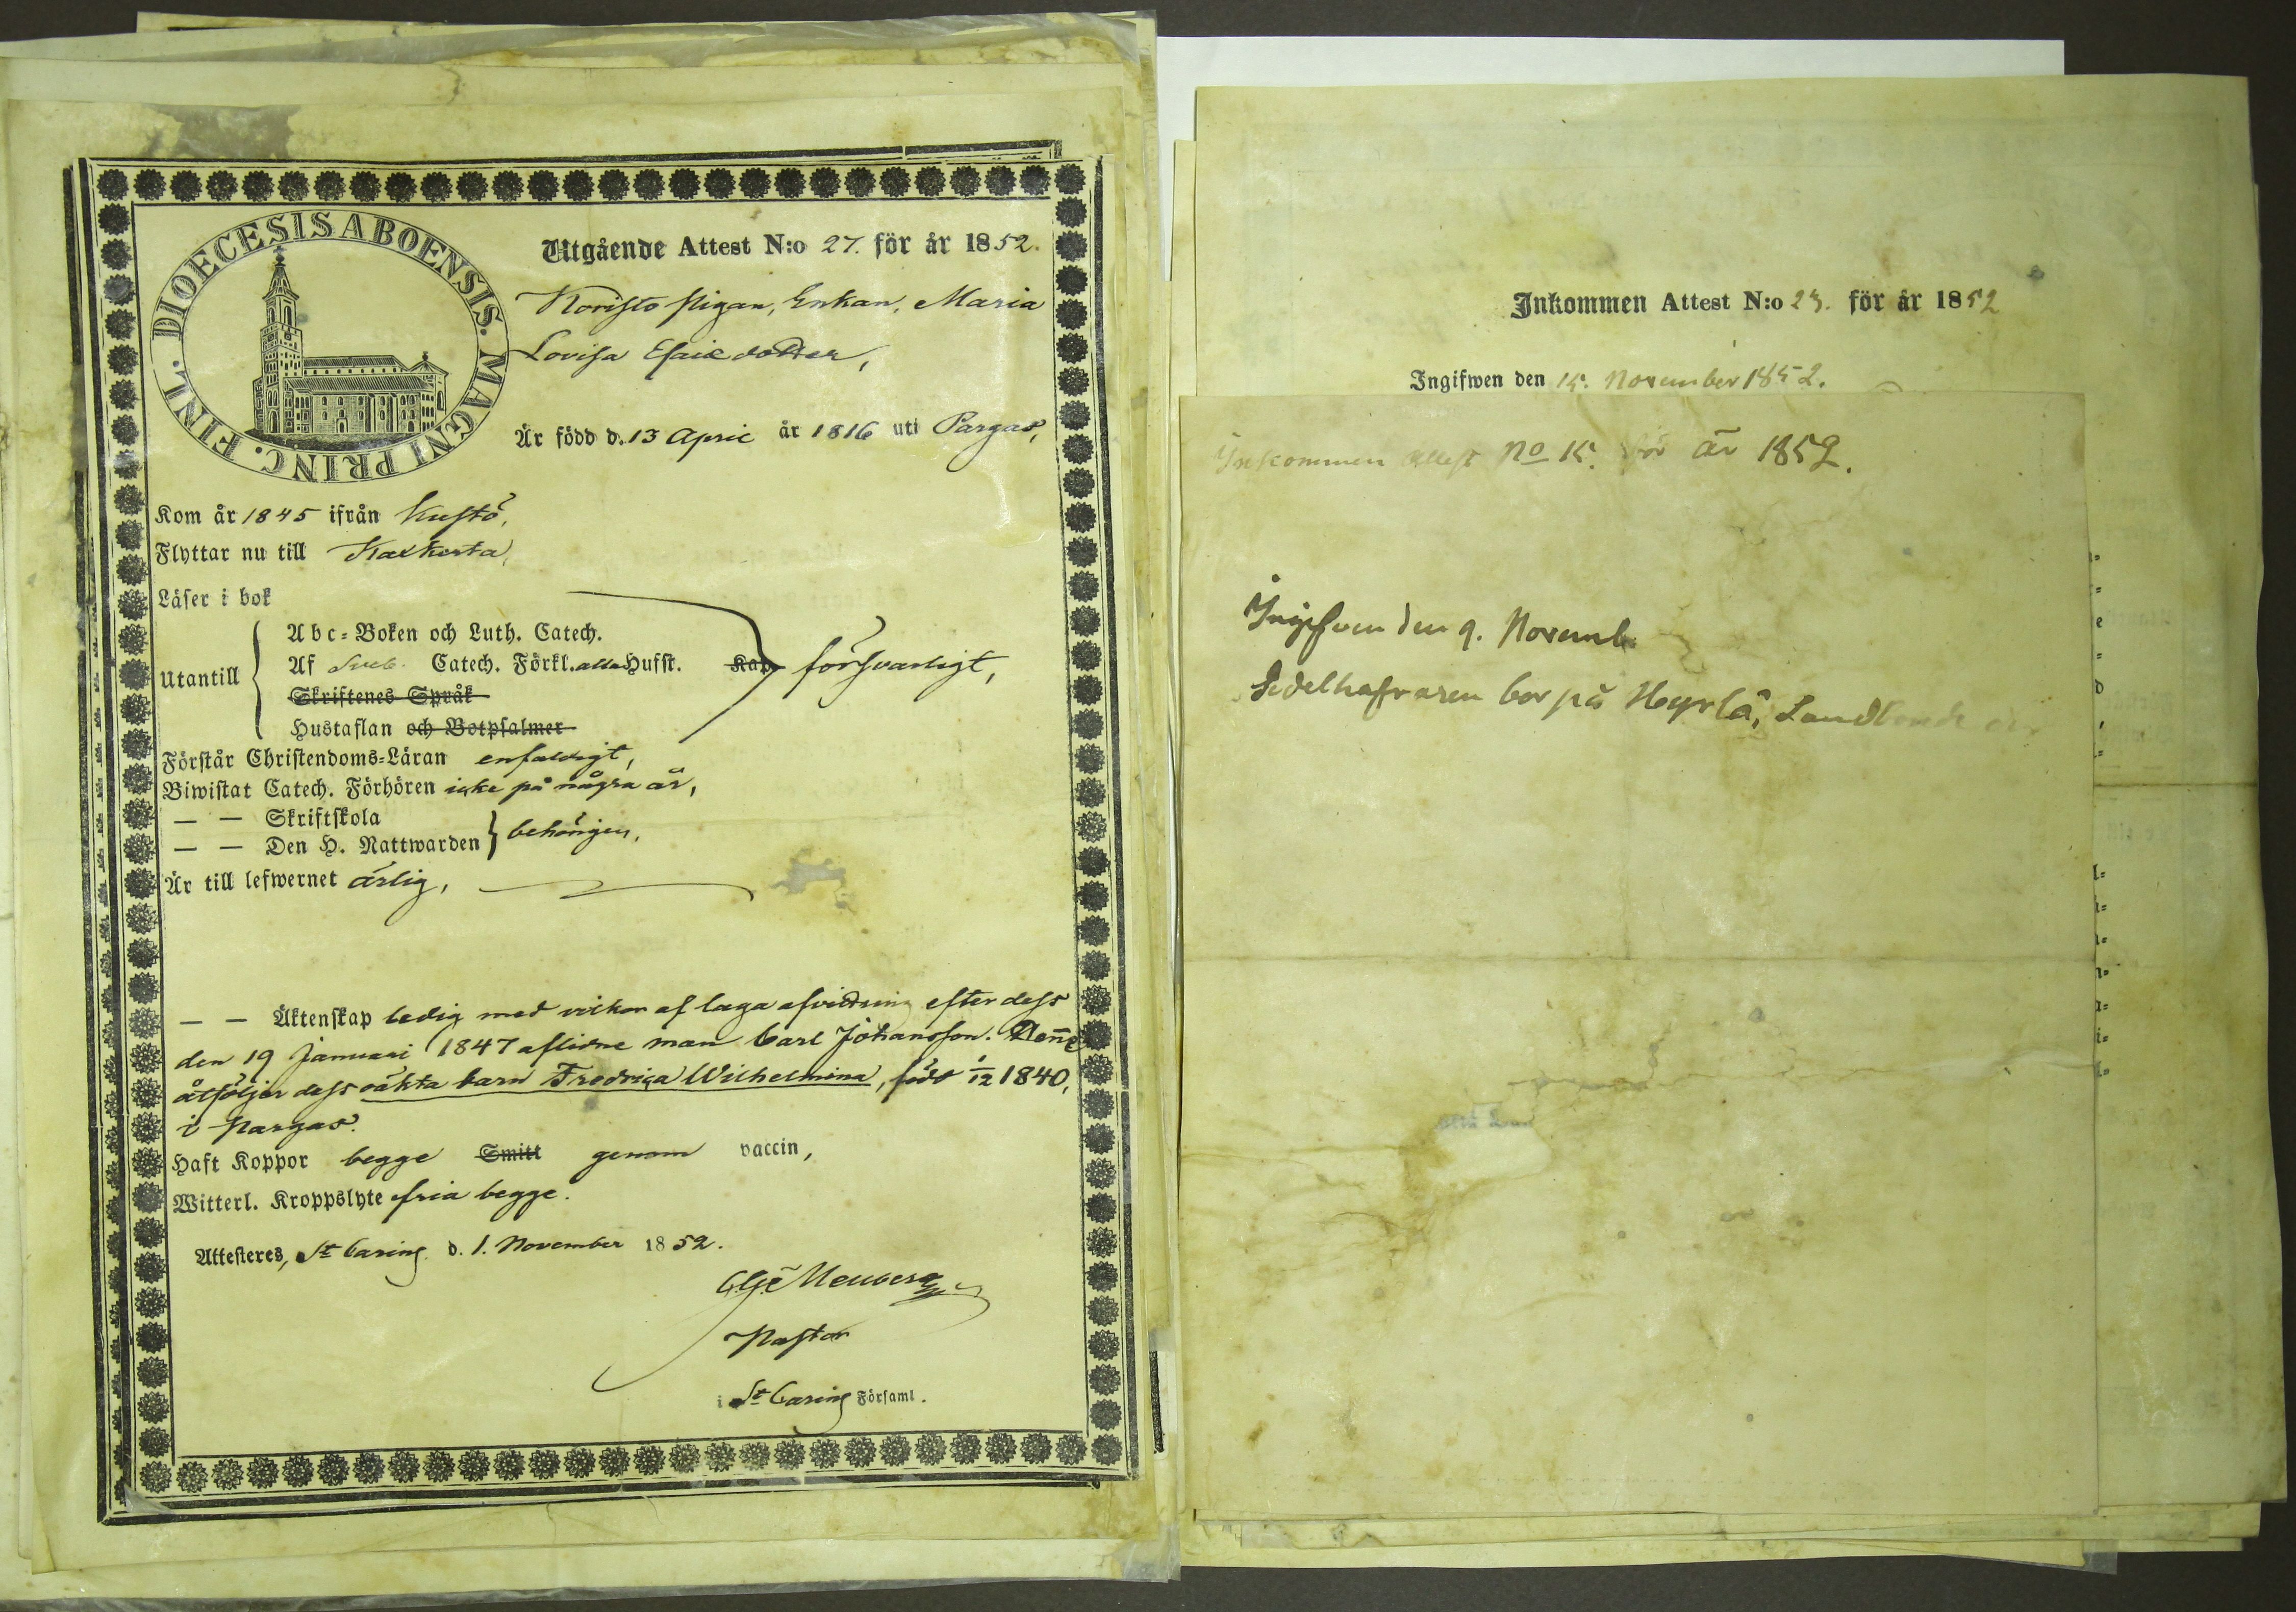 DIOECESIS ABOENSIS. MAGNI PRINC. FINL.
Utgående Attest N:o 27. för år 1852.
Koristo pigan, Enkan, Maria
Lovisa Esaiedotter,
Är född d. 13 April år 1816 uti Pargas,
Kom år 1845 ifrån Kustö,
Flyttar nu till Kaxkerta,
Läser i bok
Utantill
Abc-Boken och Luth. Catech.
Af Sveb. Catech. Förkl. alla Hufst. Kap. försvarligt,
Skriftenes Språk
Hustaflan och Botpsalmer
Förstår Christendoms-Läran enfaldigt,
Biwistat Catech. Förhören icke på några år,
— — Skriftskola
— — Den H. Nattwarden behörigen,
Är till lefwernet ärlig,
— — Äktenskap ledig med vilkor af laga afvittring efter dess
den 19 Januari 1847 aflidne man Carl Johansson. Henne
åtföljer dess oäkta barn Fredrica Wilhelmina, född 1/12 1840,
i Pargas.
Haft Koppor begge Smitt genom vaccin,
Witterl. Kroppslyte fria begge.
Attesteres, St Carins d. 1. November 1852.
Pastor
i St Carins Församl.
Inkommen Attest N:o 23. för år 1852
Ingifwen den 15. November 1852.
Inkommen Attest No 15. för år 1852.
Ingifven den 9. Novemb.
Sedelhafvaren bor på